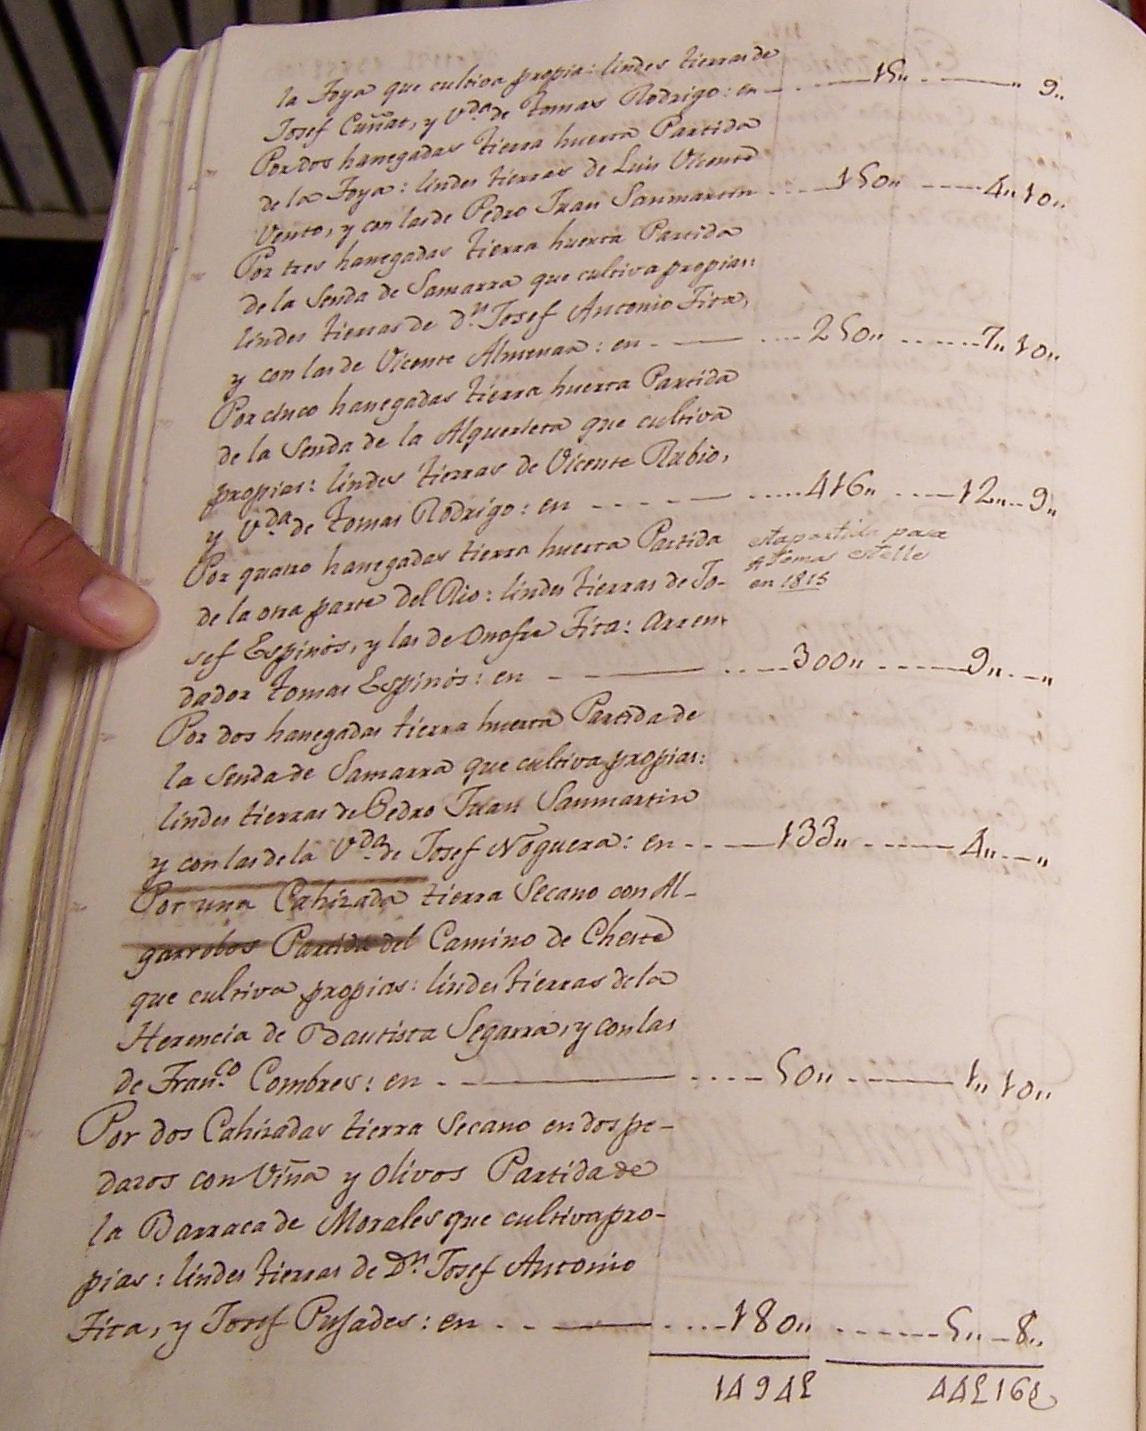 la Foya que cultiva propia: lindes tierras de
Josef Cuñat, y V.da de Tomas Rodrigo: en ---- 15,, ---- ,, 9,,
Por dos hanegadas tierra huerta Partida
de la Foya: lindes tierras de Luis Vicente
Vento, y con las de Pedro Juan Sanmartin ---- 150,, ---- 4,, 10,,
Por tres hanegadas tierra huerta Partida
de la Senda de Samarra que cultiva propias:
lindes tierras de d.n Josef Antonio Fita,
y con las de Vicente Almenar: en ---- 250,, ---- 7,, 10,,
Por cinco hanegadas tierra huerta Partida
de la Senda de la Alquerieta que cultiva
propias: lindes tierras de Vicente Rubio,
y V.da de Tomas Rodrigo: en ---- 416,, ---- 12,, 9,,
Por quatro hanegadas tierra huerta Partida
esta partida pasa
A Tomas Estelle
en 1815
de la otra parte del Rio: lindes tierras de Jo-
sef Espinós, y las de Onofre Fita: Arren-
dador Tomas Espinós: en ---- 300,, ---- 9,, -- ,,
Por dos hanegadas tierra huerta Partida de
la Senda de Samarra que cultiva propias:
lindes tierras de Pedro Juan Sanmartin
y con las de la V.da de Josef Noguera: en ---- 133,, ---- 4,, -- ,,
Por una Cahizada tierra Secano con Al-
garrobos Partida del Camino de Cheste
que cultiva propias: lindes tierras de la
Herencia de Bautista Segarra, y con las
de Fran.co Combres: en ---- 50,, ---- 1,, 10,,
Por dos Cahizadas tierra Secano en dos pe-
dazos con Viña y Olivos Partida de
la Barraca de Morales que cultiva pro-
pias: lindes tierras de D.n Josef Antonio
Fita, y Josef Pujades: en ---- 180,, ---- 5,, 8,,
1494£ 44£16£